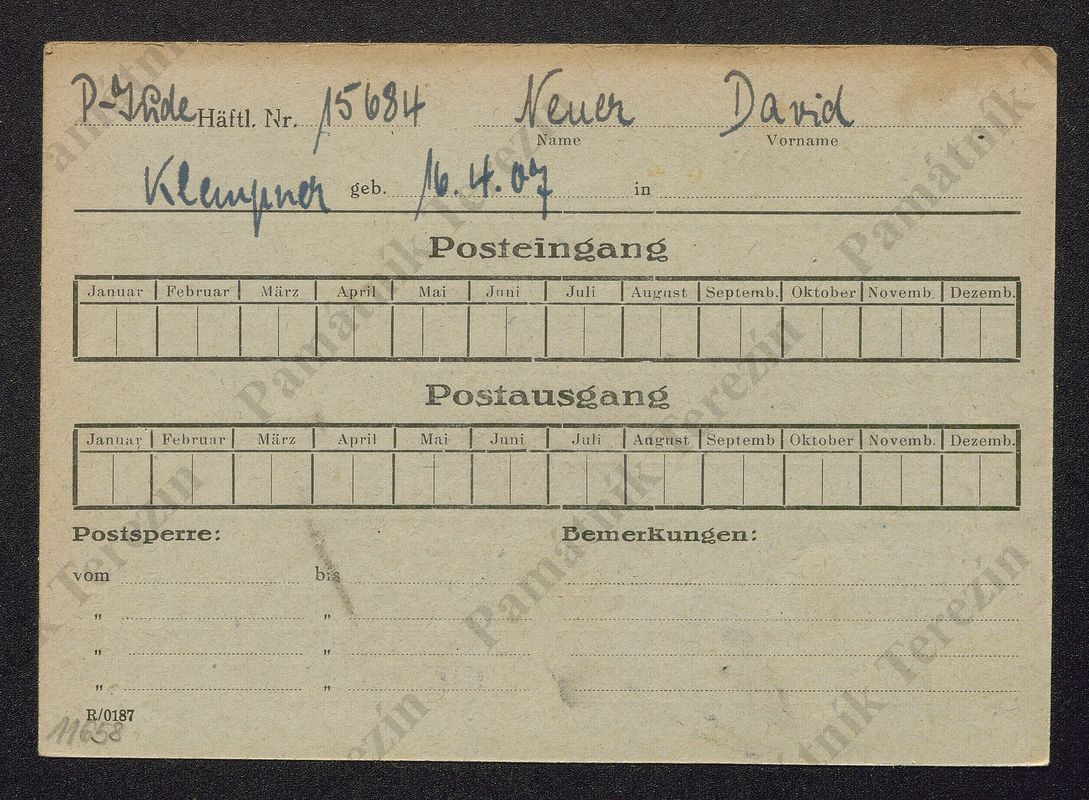 P-Jude Häftl. Nr. 15684 Neuer David
Name Vorname
Klempner geb. 16.4.07 in
Posteingang
Januar Februar März April Mai Juni Juli August Septemb. Oktober Novemb. Dezemb.
Postausgang
Januar Februar März April Mai Juni Juli August Septemb Oktober Novemb. Dezemb.
Postsperre: Bemerkungen:
vom bis
„ „
„ „
„ „
R/0187
11658
Památník Terezín